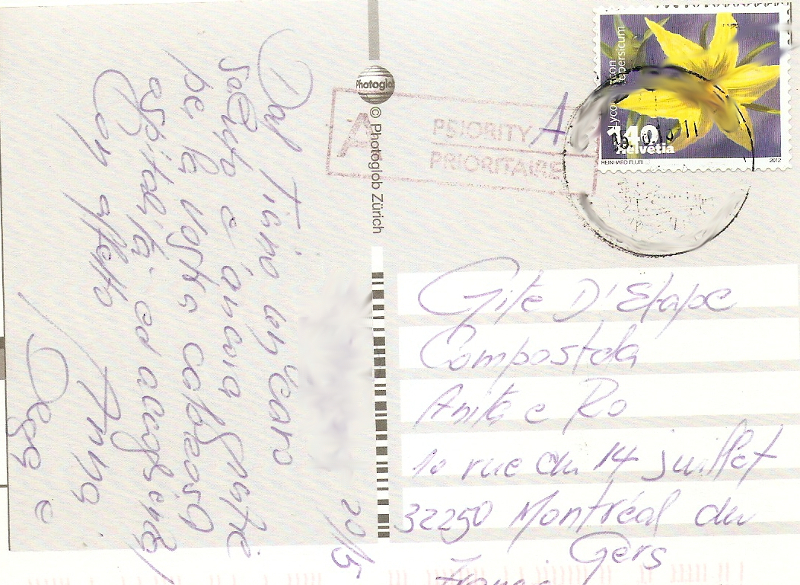 20/5
Dal Ticino un caro
saluto e ancora grazie
pe la vostra calorosa
ospitalità ed accoglienza
Con affetto
Anna
e
Photoglob
© Photoglob Zürich
A PRIORITY A
PRIORITAIRE
Lycopersicon
140
Helvetia
2012
Gite D'Etape
Compostela
Anita e Ro
10 rue du 14 juillet
32250 Montréal du
Gers